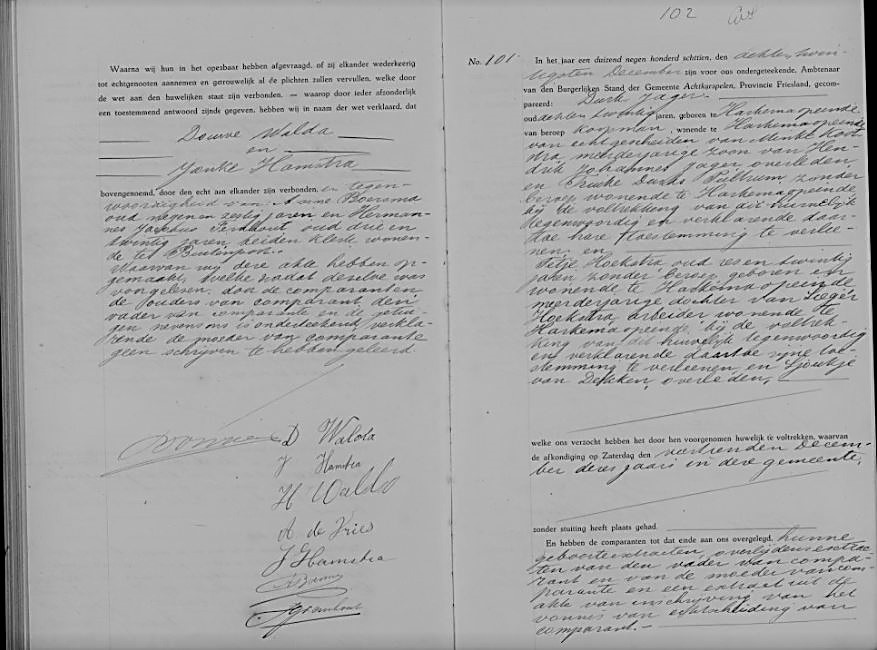 Waarna wij hun in het openbaar hebben afgevraagd, of zij elkander wederkeerig
tot echtgenooten aannemen en getrouwelijk al de plichten zullen vervullen, welke door
de wet aan den huwelijken staat zijn verbonden, — waarop door ieder afzonderlijk
een toestemmend antwoord zijnde gegeven, hebben wij in naam der wet verklaard, dat
Douwe Walda
en
Jenke Hamstra
bovengenoemd, door den echt aan elkander zijn verbonden, in tegen-
woordigheid van: Anne Boersma
oud negen en zestig jaren en Herman-
nes Jacobus oud drie en
twintig jaren, beiden wonen-
de te Buitenpost.
Waarvan wij deze akte hebben op-
gemaakt, welke nadat dezelve was
voorgelezen, door de comparanten
de ouders van comparant, den
vader van comparante en de getui-
gen nevens ons is onderteekend, verkla-
rende de moeder van comparante
geen schrijven te hebben geleerd.
D Walda
J Hamstra
H Walda
A de Vries
J Hamstra
102
No. 101
In het jaar een duizend negen honderd achttien, den achten twin-
tigsten December zijn voor ons ondergeteekende, Ambtenaar
van den Burgerlijken Stand der Gemeente Achtkarspelen, Provincie Friesland, gecom-
pareerd: Durk Jager.
oud achten twintig jaren, geboren te Harkemaopeende
van beroep koopman, wonende te Harkemaopeende
van echt gescheiden van Minke Koot-
stra, meerderjarige zoon van Hen-
drik Johannes Jager overleden
en Durks Pultrum zonder
beroep wonende te Harkemaopeende
bij de voltrekking van dit huwelijk
tegenwoordig en verklarende daar-
toe hare toestemming te verlee-
nen en
Hoekstra oud zes en twintig
jaren zonder beroep geboren en
wonende te Harkemaopeende
meerderjarige dochter van Sieger
Hoekstra arbeider wonende te
Harkemaopeende, bij de voltrek-
king van dit huwelijk tegenwoordig
en verklarende daartoe zijne toe-
stemming te verleenen, en Sjoukje
van Dekken, overleden,
welke ons verzocht hebben het door hen voorgenomen huwelijk te voltrekken, waarvan
de afkondiging op Zaterdag den veertienden Decem-
ber dezes jaars in deze gemeente,
zonder stuiting heeft plaats gehad.
En hebben de comparanten tot dat einde aan ons overgelegd, hunne
geboorteextracten, overlijdensextrac-
ten van den vader van compa-
rant en van de moeder van com-
parante en een extract uit de
akte van inschrijving van het
vonnis van echtscheiding van
comparant.—